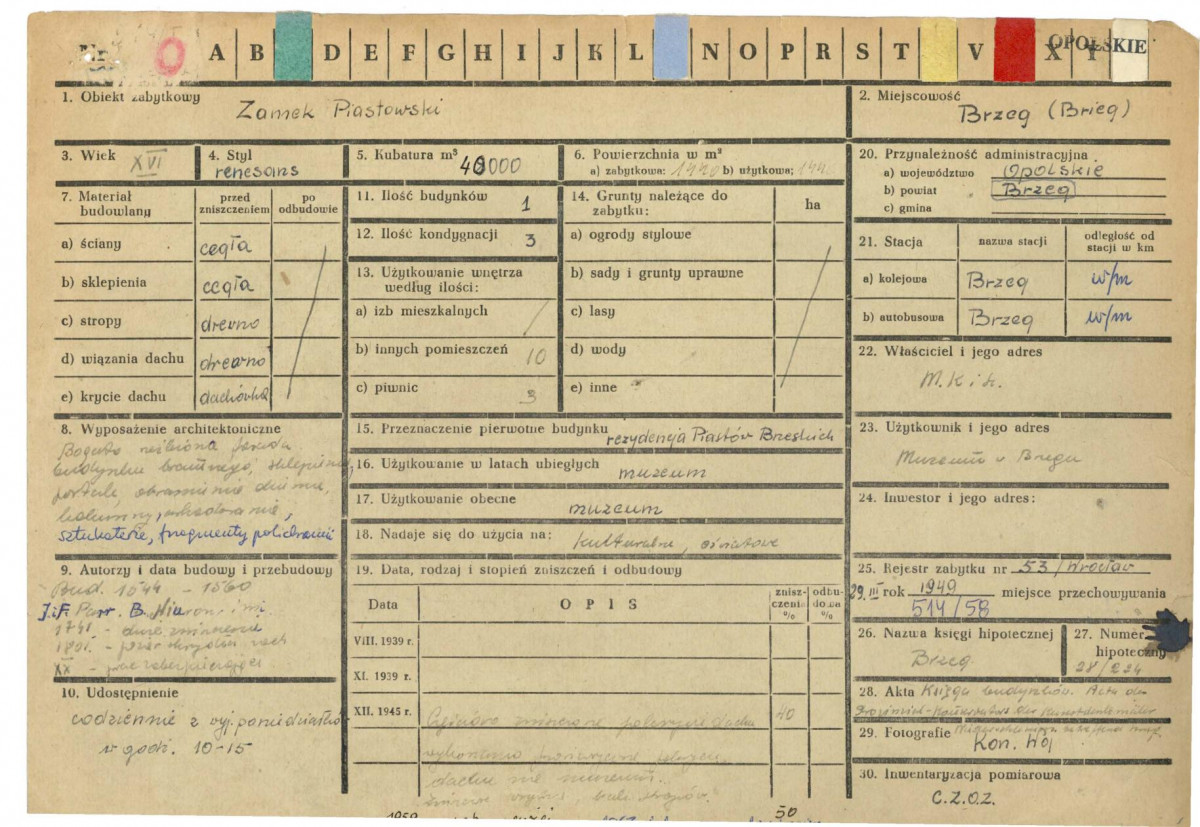 Nr
O A B D E F G H I J K L N O P R S T V X Y
OPOLSKIE
1. Obiekt zabytkowy
Zamek Piastowski
2. Miejscowość
Brzeg (Brieg)
3. Wiek XVI
4. Styl
renesans
5. Kubatura m³
40000
6. Powierzchnia w m²
a) zabytkowa: 1440 b) użytkowa;
7. Materiał budowlany
przed zniszczeniem
po odbudowie
a) ściany cegła
b) sklepienia cegła
c) stropy drewno
d) wiązania dachu drewno
e) krycie dachu dachówka
8. Wyposażenie architektoniczne
Bogato rzeźbiona fasada
budynku bramnego, sklepienia,
portale, obramienia okienne,
kolumny,
sztukaterie, fragmenty polichromii
9. Autorzy i data budowy i przebudowy
Bud. 1544 - 1560
J.F. Parr. B. Niuron i in.
1741 - duże zniszczenie
1801. -
XX - prace zabezpieczające
10. Udostępnienie
codziennie z wyj. poniedziałków
w godz. 10-15
11. Ilość budynków 1
12. Ilość kondygnacji 3
13. Użytkowanie wnętrza
według ilości:
a) izb mieszkalnych /
b) innych pomieszczeń 10
c) piwnic 3
14. Grunty należące do
zabytku:
ha
a) ogrody stylowe
b) sady i grunty uprawne
c) lasy
d) wody
e) inne
15. Przeznaczenie pierwotne budynku
rezydencja Piastów Brzeskich
16. Użytkowanie w latach ubiegłych
muzeum
17. Użytkowanie obecne
muzeum
18. Nadaje się do użycia na: kulturalne, oświatowe
19. Data, rodzaj i stopień zniszczeń i odbudowy
Data
OPIS
znisz-
czenia
%
odbu-
dowa
%
VIII. 1939 r.
XI. 1939 r.
XII. 1945 r.
Częściowo zniszczone pokrycie dachu 40
wykonano
dachu nad muzeum.
50
20. Przynależność administracyjna
a) województwo Opolskie
b) powiat Brzeg
c) gmina
21. Stacja
nazwa stacji
odległość od
stacji w km
a) kolejowa Brzeg w/m
b) autobusowa Brzeg w/m
22. Właściciel i jego adres
M.K i S.
23. Użytkownik i jego adres
Muzeum w Brzegu
24. Inwestor i jego adres:
25. Rejestr zabytku nr 53/Wrocław
29.III rok 1949 miejsce przechowywania
514/58
26. Nazwa księgi hipotecznej
Brzeg
27. Numer
hipoteczny
28/224
28. Akta Księga budynków. Akta
29. Fotografie
Kon. Woj
30. Inwentaryzacja pomiarowa
C.Z.O.Z.